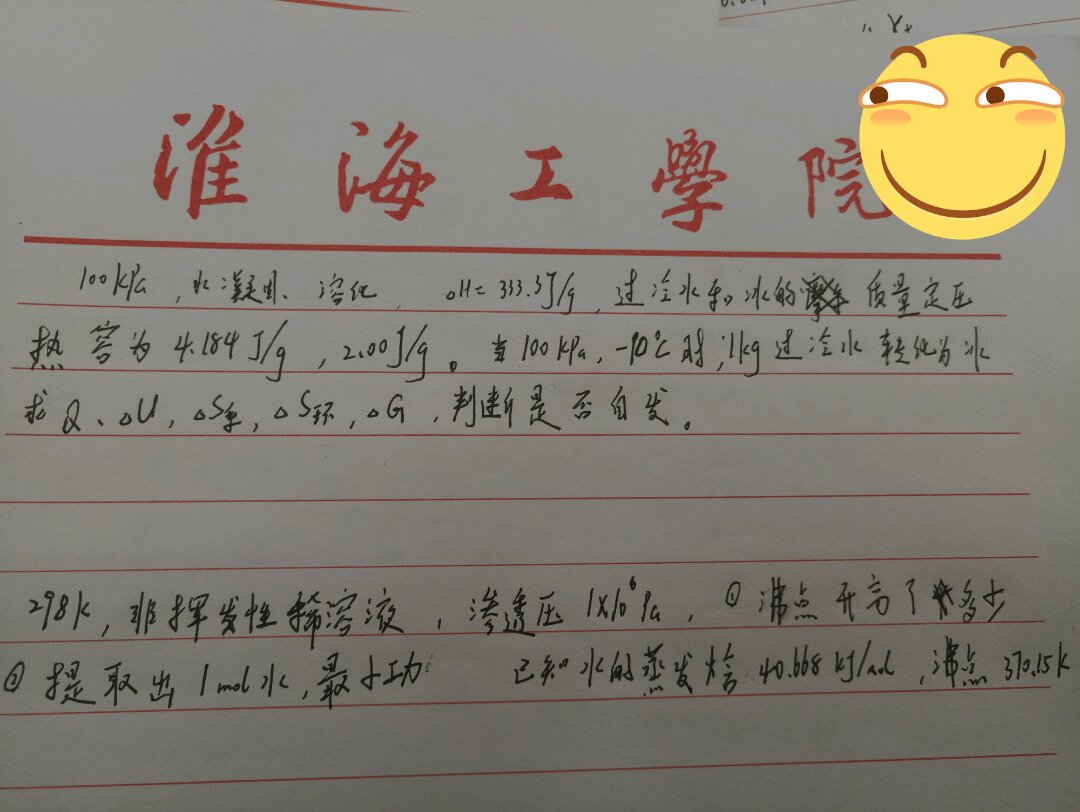 淮海工學院
100kPa，水凝固、溶化，△H=333.3J/g，过冷水和冰的质量定压
热容为4.184J/g，2.00J/g。当100kPa，-10℃时，1kg过冷水转化为冰
求Q、△U，△S系，△S环，△G，判断是否自发。
298k，非挥发性稀溶液，渗透压1×10⁶Pa，① 沸点升高了多少
② 提取出1mol水，最小功 已知水的蒸发焓40.668kJ/mol，沸点370.15k